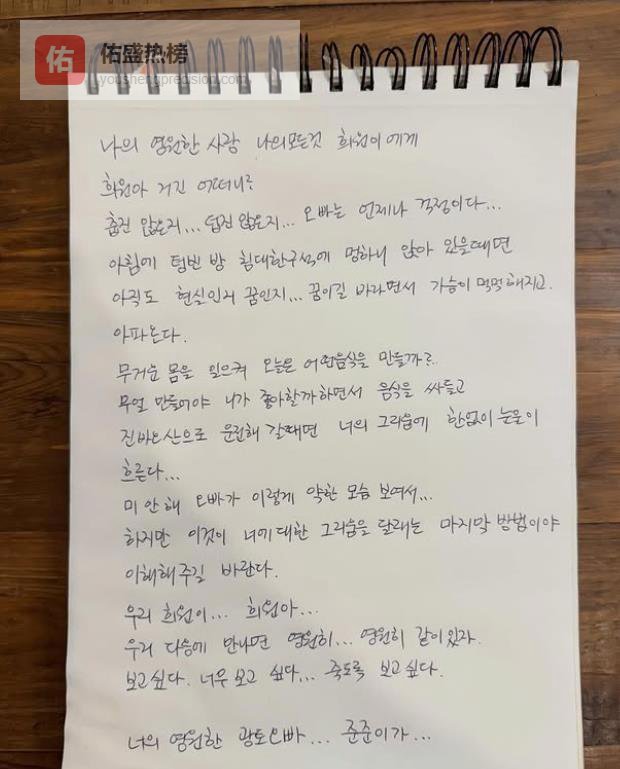 佑
佑盛热榜
youshengprecision.com
나의 영원한 사랑 나의모든것 희원이에게
희원아 거긴 어떠니?
춥진 않은지... 덥진 않은지... 오빠는 언제나 걱정이다...
아침에 텅빈 방 침대한구석에 멍하니 앉아 있을때면
아직도 현실인지 꿈인지... 꿈이길 바라면서 가슴이 먹먹해지고.
아파온다.
무거운 몸을 일으켜 오늘은 어떤음식을 만들까?..
무얼 만들어야 너가 좋아할까하면서 음식을 싸들고
진바오산으로 운전해 갈때면 너의 그리움에 한없이 눈물이
흐른다...
미안해 오빠가 이렇게 약한 모습 보여서...
하지만 이것이 너에대한 그리움을 달래는 마지막 방법이야
이해해주길 바란다.
우리 희원이... 희원아...
우리 다음에 만나면 영원히... 영원히 같이있자.
보고싶다. 너무 보고 싶다... 죽도록 보고싶다.
너의 영원한 광토오빠... 준준이가...